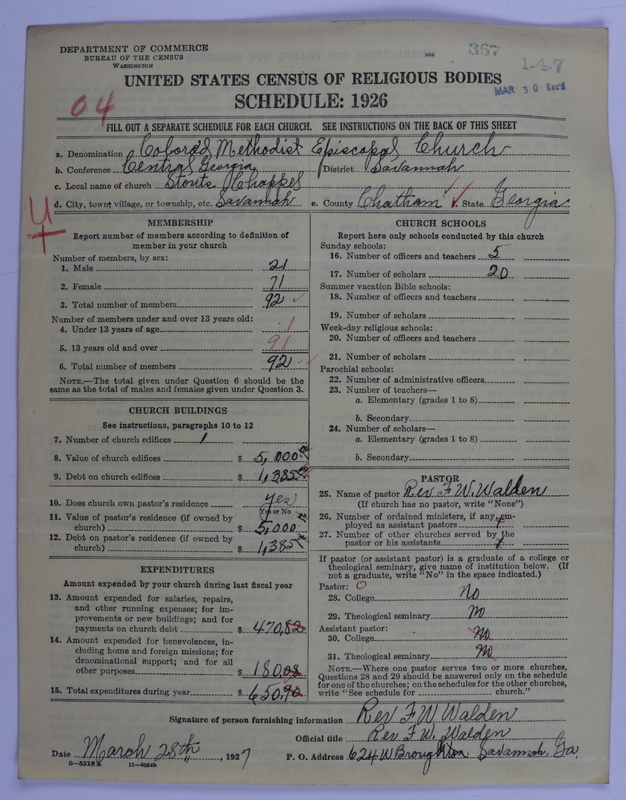 DEPARTMENT OF COMMERCE
BUREAU OF THE CENSUS
WASHINGTON
367
1-4-7
MAR 30
UNITED STATES CENSUS OF RELIGIOUS BODIES
SCHEDULE: 1926
04
FILL OUT A SEPARATE SCHEDULE FOR EACH CHURCH. SEE INSTRUCTIONS ON THE BACK OF THIS SHEET
a. Denomination Colored Methodist Episcopal Church
b. Conference Central Georgia District Savannah
c. Local name of church Stouts Chappel
d. City, town, village, or township, etc. Savannah e. County Chatham State Georgia
MEMBERSHIP
Report number of members according to definition of
member in your church
Number of members, by sex:
1. Male 21
2. Female 71
3. Total number of members 92
Number of members under and over 13 years old:
4. Under 13 years of age 1
5. 13 years old and over 91
6. Total number of members 92
NOTE.—The total given under Question 6 should be the
same as the total of males and females given under Question 3.
CHURCH BUILDINGS
See instructions, paragraphs 10 to 12
7. Number of church edifices 1
8. Value of church edifices $ 5,000
9. Debt on church edifices $ 1,385
10. Does church own pastor's residence yes
Yes or No
11. Value of pastor's residence (if owned by
church) $ 5,000
12. Debt on pastor's residence (if owned by
church) $ 1,385
EXPENDITURES
Amount expended by your church during last fiscal year
13. Amount expended for salaries, repairs,
and other running expenses; for im-
provements or new buildings; and for
payments on church debt $ 470.82
14. Amount expended for benevolences, in-
cluding home and foreign missions; for
denominational support; and for all
other purposes $ 180.08
15. Total expenditures during year $ 650.90
CHURCH SCHOOLS
Report here only schools conducted by this church
Sunday schools:
16. Number of officers and teachers 5
17. Number of scholars 20
Summer vacation Bible schools:
18. Number of officers and teachers
19. Number of scholars
Week-day religious schools:
20. Number of officers and teachers
21. Number of scholars
Parochial schools:
22. Number of administrative officers
23. Number of teachers—
a. Elementary (grades 1 to 8)
b. Secondary
24. Number of scholars—
a. Elementary (grades 1 to 8)
b. Secondary
PASTOR
25. Name of pastor Rev F. W. Walden
(If church has no pastor, write "None")
26. Number of ordained ministers, if any, em-
ployed as assistant pastors
27. Number of other churches served by the
pastor or his assistants
If pastor (or assistant pastor) is a graduate of a college or
theological seminary, give name of institution below. (If
not a graduate, write "No" in the space indicated.)
Pastor: O
28. College No
29. Theological seminary No
Assistant pastor:
30. College No
31. Theological seminary No
NOTE.—Where one pastor serves two or more churches,
Questions 28 and 29 should be answered only on the schedule
for one of the churches; on the schedules for the other churches,
write "See schedule for church."
Signature of person furnishing information Rev F. W. Walden
Official title Rev F. W. Walden
Date March 28th, 1927 P. O. Address 624 W Broughton Savannah, Ga.
8-5518 a